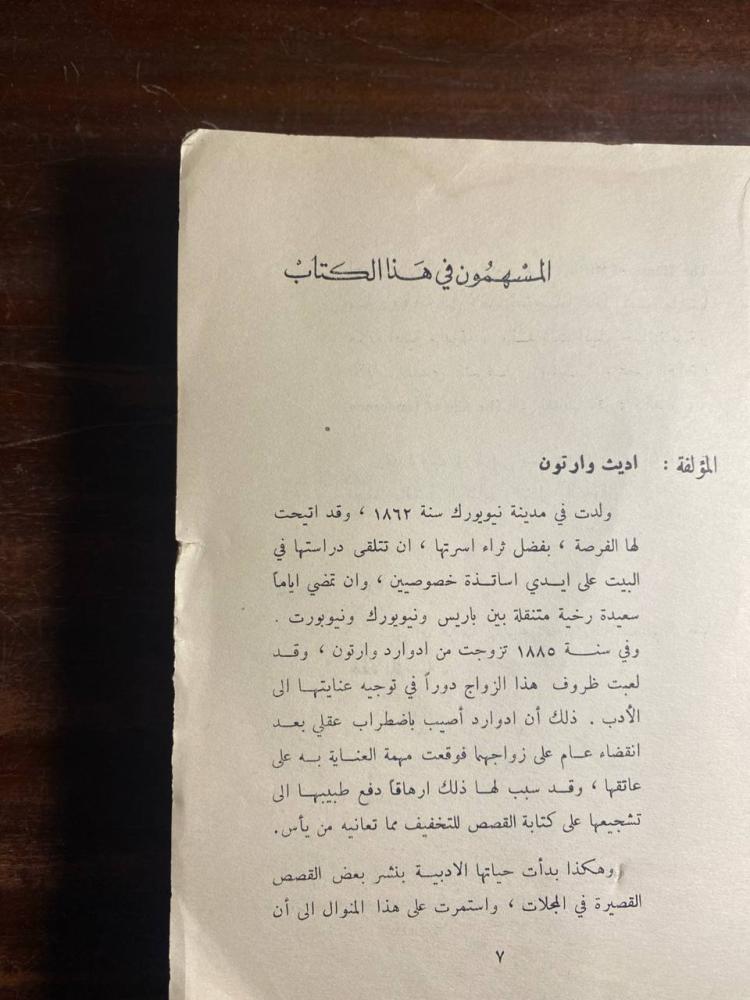 المسْهمُون في هَذا الكتابْ
المؤلفة : اديث وارتون
ولدت في مدينة نيويورك سنة ١٨٦٢ ، وقد اتيحت
لها الفرصة ، بفضل ثراء اسرتها ، ان تتلقى دراستها في
البيت على ايدي اساتذة خصوصيين ، وان تمضي اياماً
سعيدة رخية متنقلة بين باريس ونيويورك ونيوبورت .
وفي سنة ١٨٨٥ تزوجت من ادوارد وارتون ، وقد
لعبت ظروف هذا الزواج دوراً في توجيه عنايتها الى
الأدب . ذلك أن ادوارد أصيب باضطراب عقلي بعد
انقضاء عام على زواجهما فوقعت مهمة العناية به على
عاتقها ، وقد سبب لها ذلك ارهاقاً دفع طبيبها الى
تشجيعها على كتابة القصص للتخفيف مما تعانيه من يأس.
وهكذا بدأت حياتها الادبية بنشر بعض القصص
القصيرة في المجلات ، واستمرت على هذا المنوال الى أن
٧